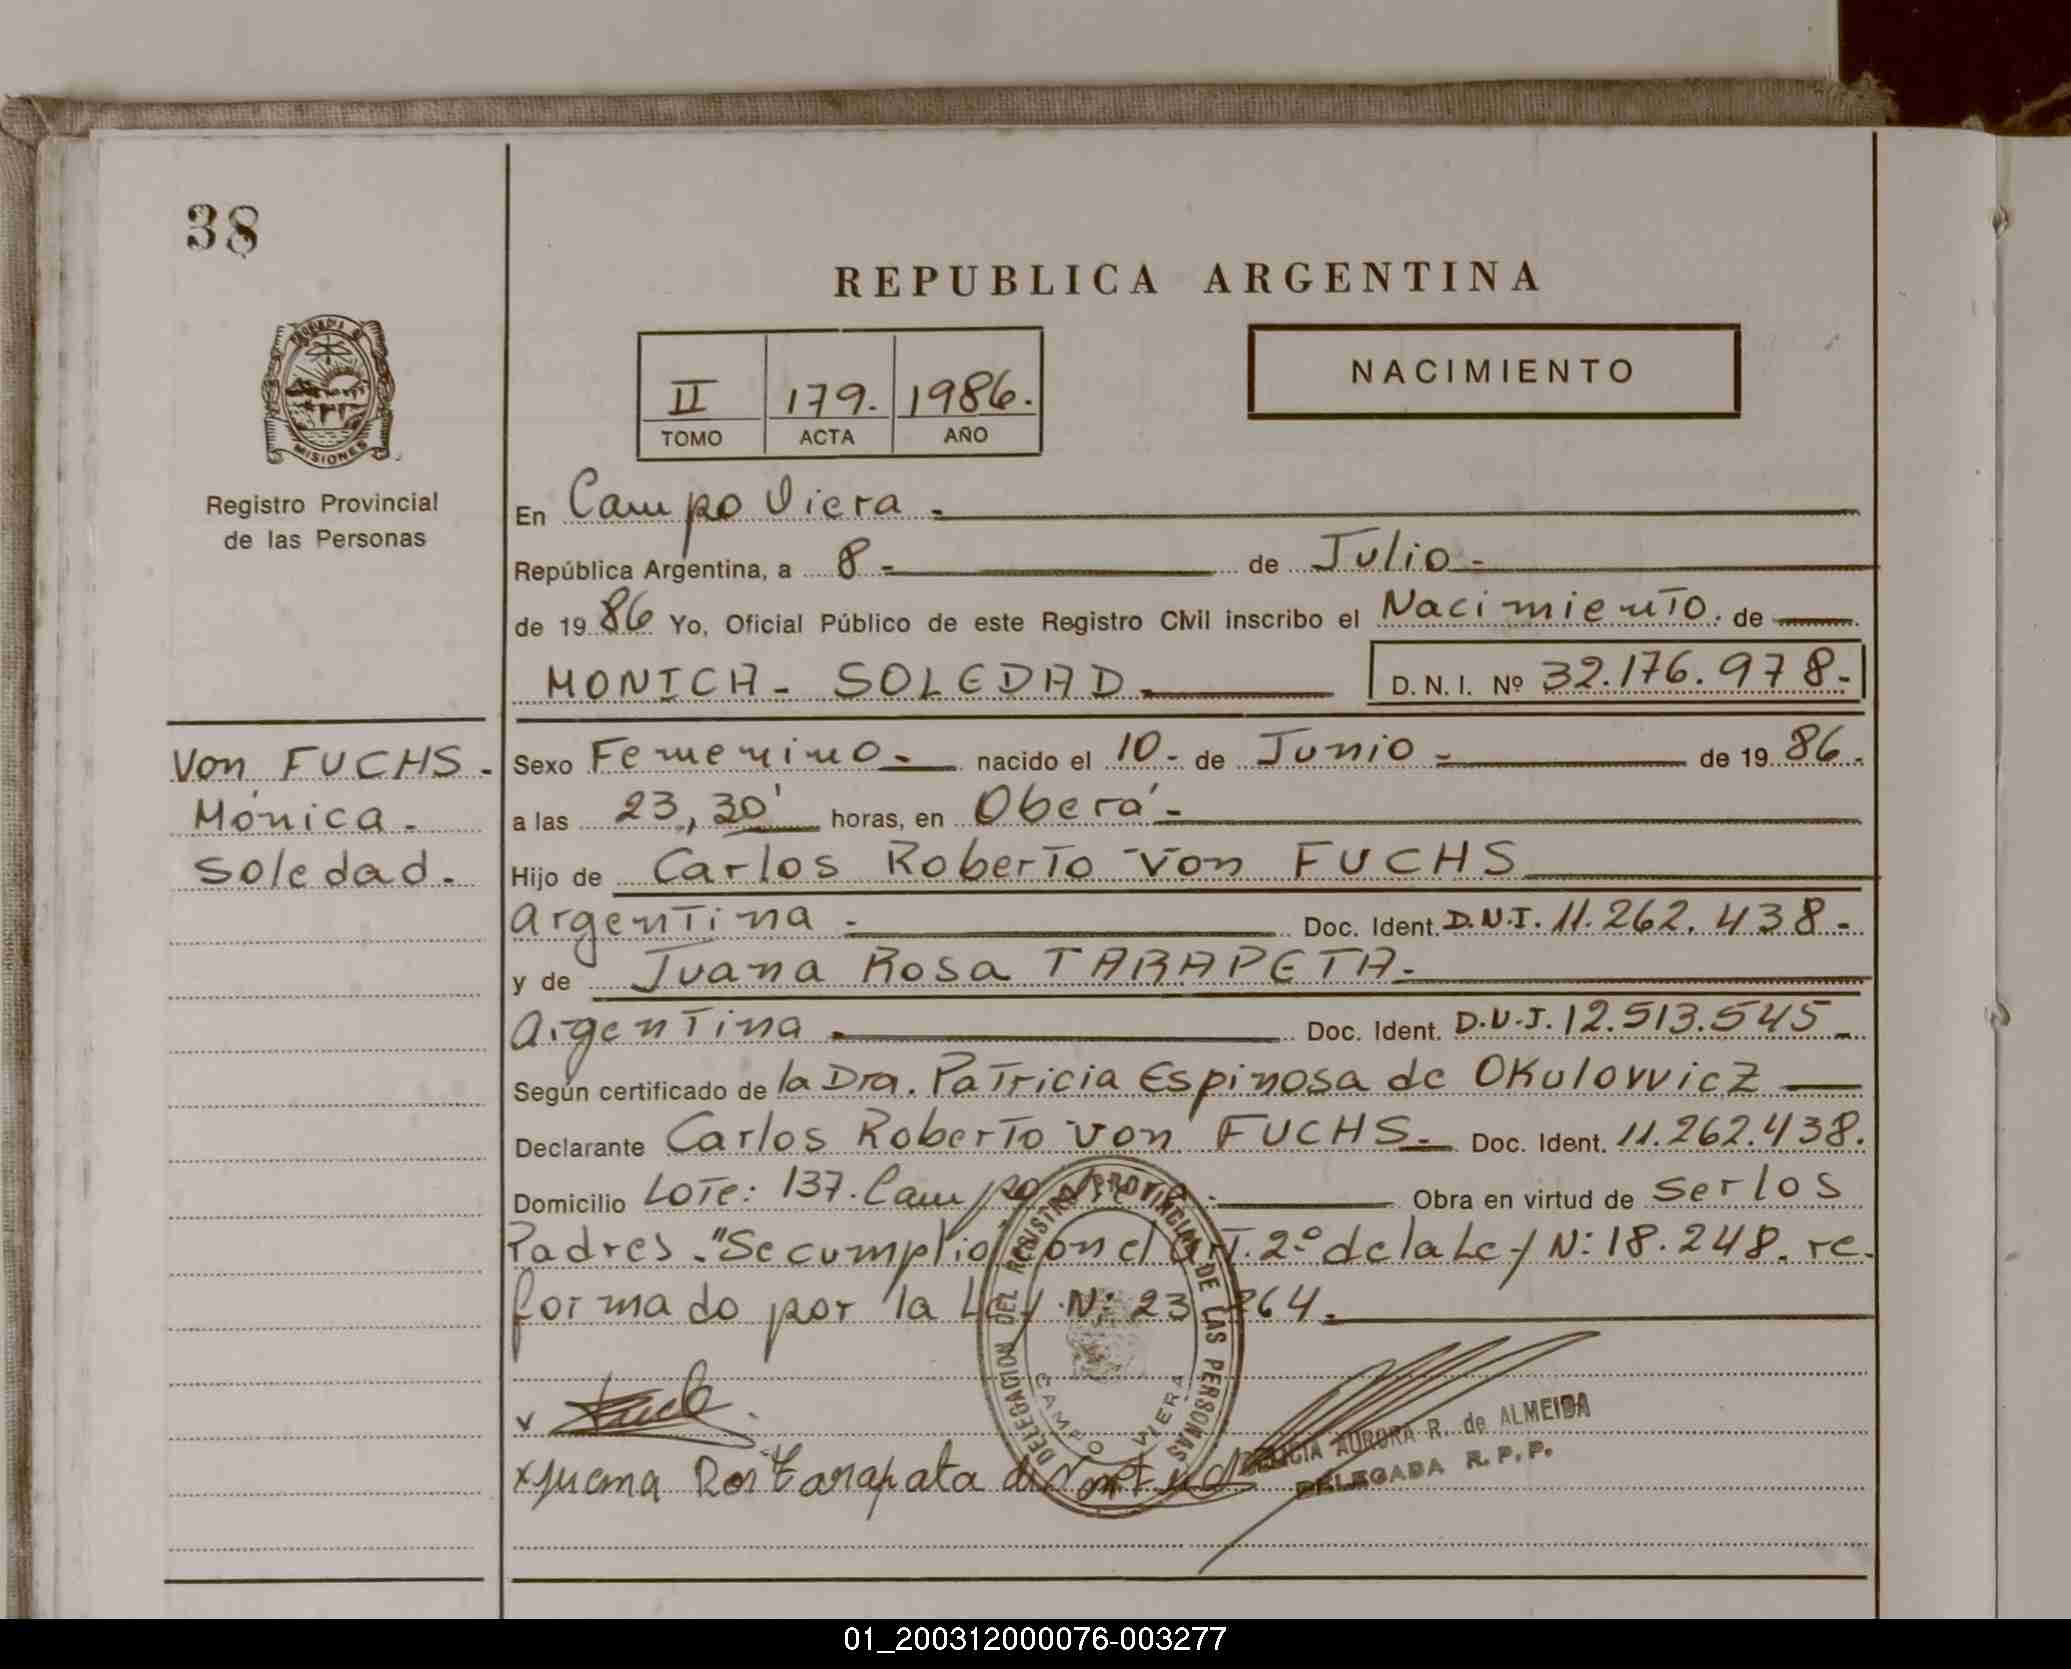 38
REPUBLICA ARGENTINA
II 179. 1986.
TOMO ACTA AÑO
NACIMIENTO
PROVINCIA DE
MISIONES
Registro Provincial
de las Personas
En Campo Viera.
República Argentina, a 8- de Julio-
de 1986 Yo, Oficial Público de este Registro Civil inscribo el Nacimiento. de
MONICA- SOLEDAD. D.N.I. Nº 32.176.978.-
Von FUCHS.
Mónica.
Soledad.
Sexo Femenino- nacido el 10- de Junio- de 1986.
a las 23,30' horas, en Oberá-
Hijo de Carlos Roberto Von FUCHS
Argentina. Doc. Ident. D.N.I. 11.262.438-
y de Juana Rosa TARAPETA.
Argentina Doc. Ident. D.N.I. 12.513.545
Según certificado de la Dra. Patricia Espinosa de Okulovvicz
Declarante Carlos Roberto Von FUCHS. Doc. Ident. 11.262.438.
Domicilio Lote: 137. Campo Obra en virtud de Ser los
Padres. "Se cumplio con el ArT. 2º de la Ley N: 18.248. re-
formado por la Ley N: 23 264.
DELEGACION DEL REGISTRO PROVINCIAL DE LAS PERSONAS
CAMPO VIERA
AURORA R. de ALMEIDA
DELEGADA R.P.P.
01_200312000076-003277